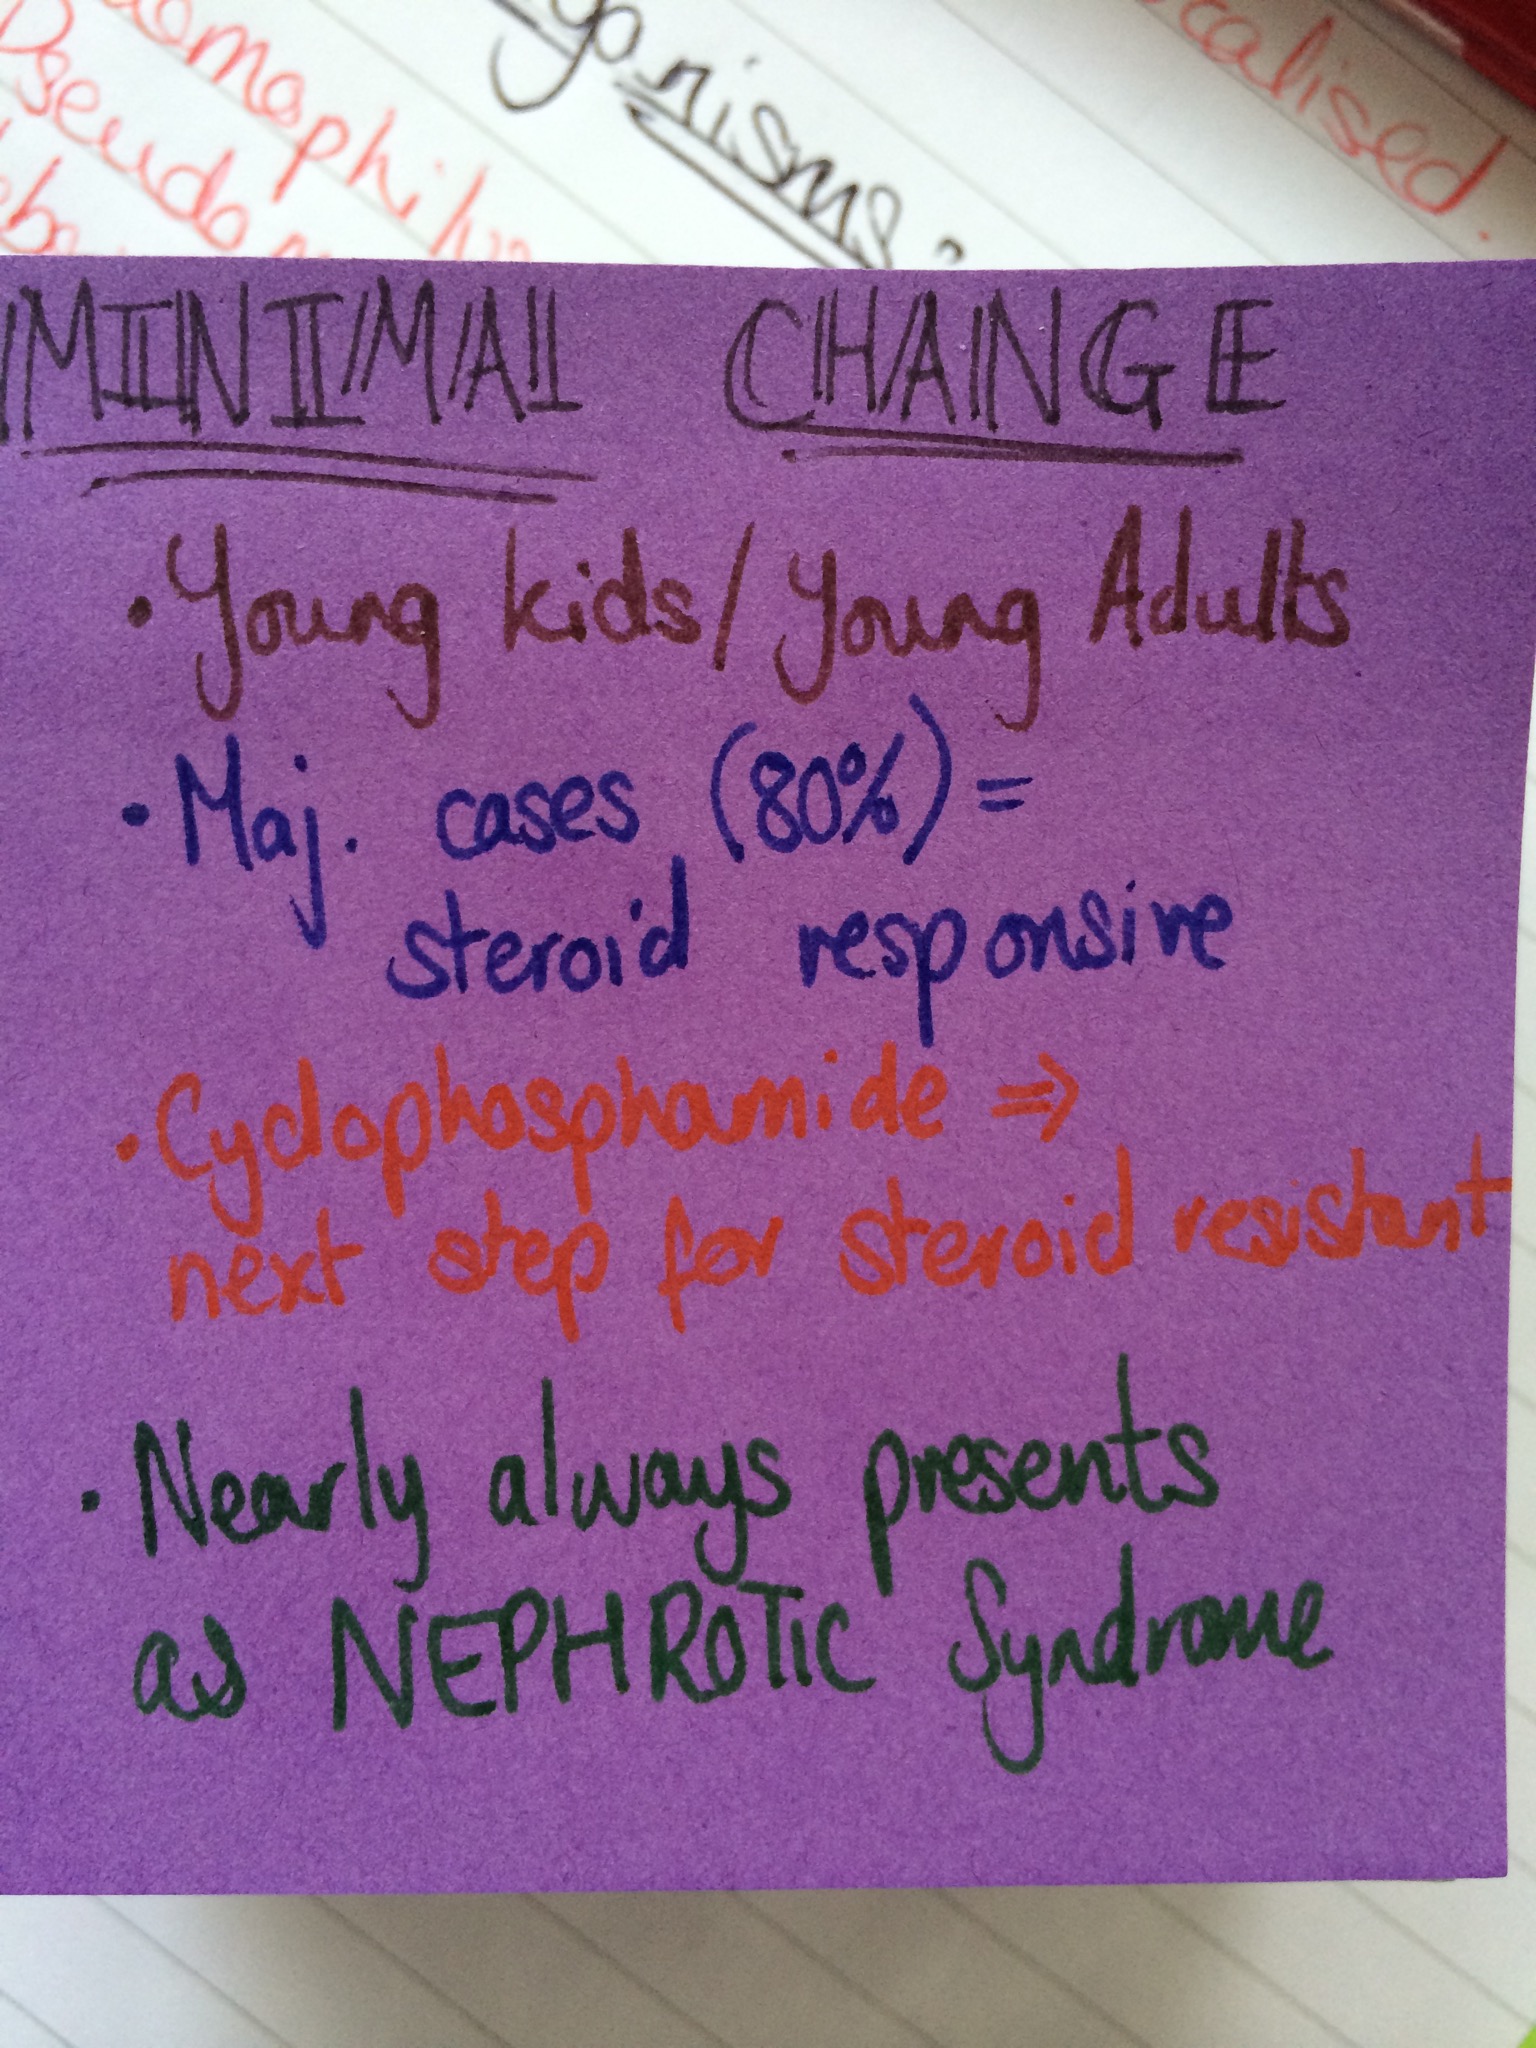 ganisms:
calised.
MINIMAL CHANGE
• Young kids/Young Adults
• Maj. cases (80%) =
steroid responsive
• Cyclophosphamide ⇒
next step for steroid resistant
• Nearly always presents
as NEPHROTIC Syndrome